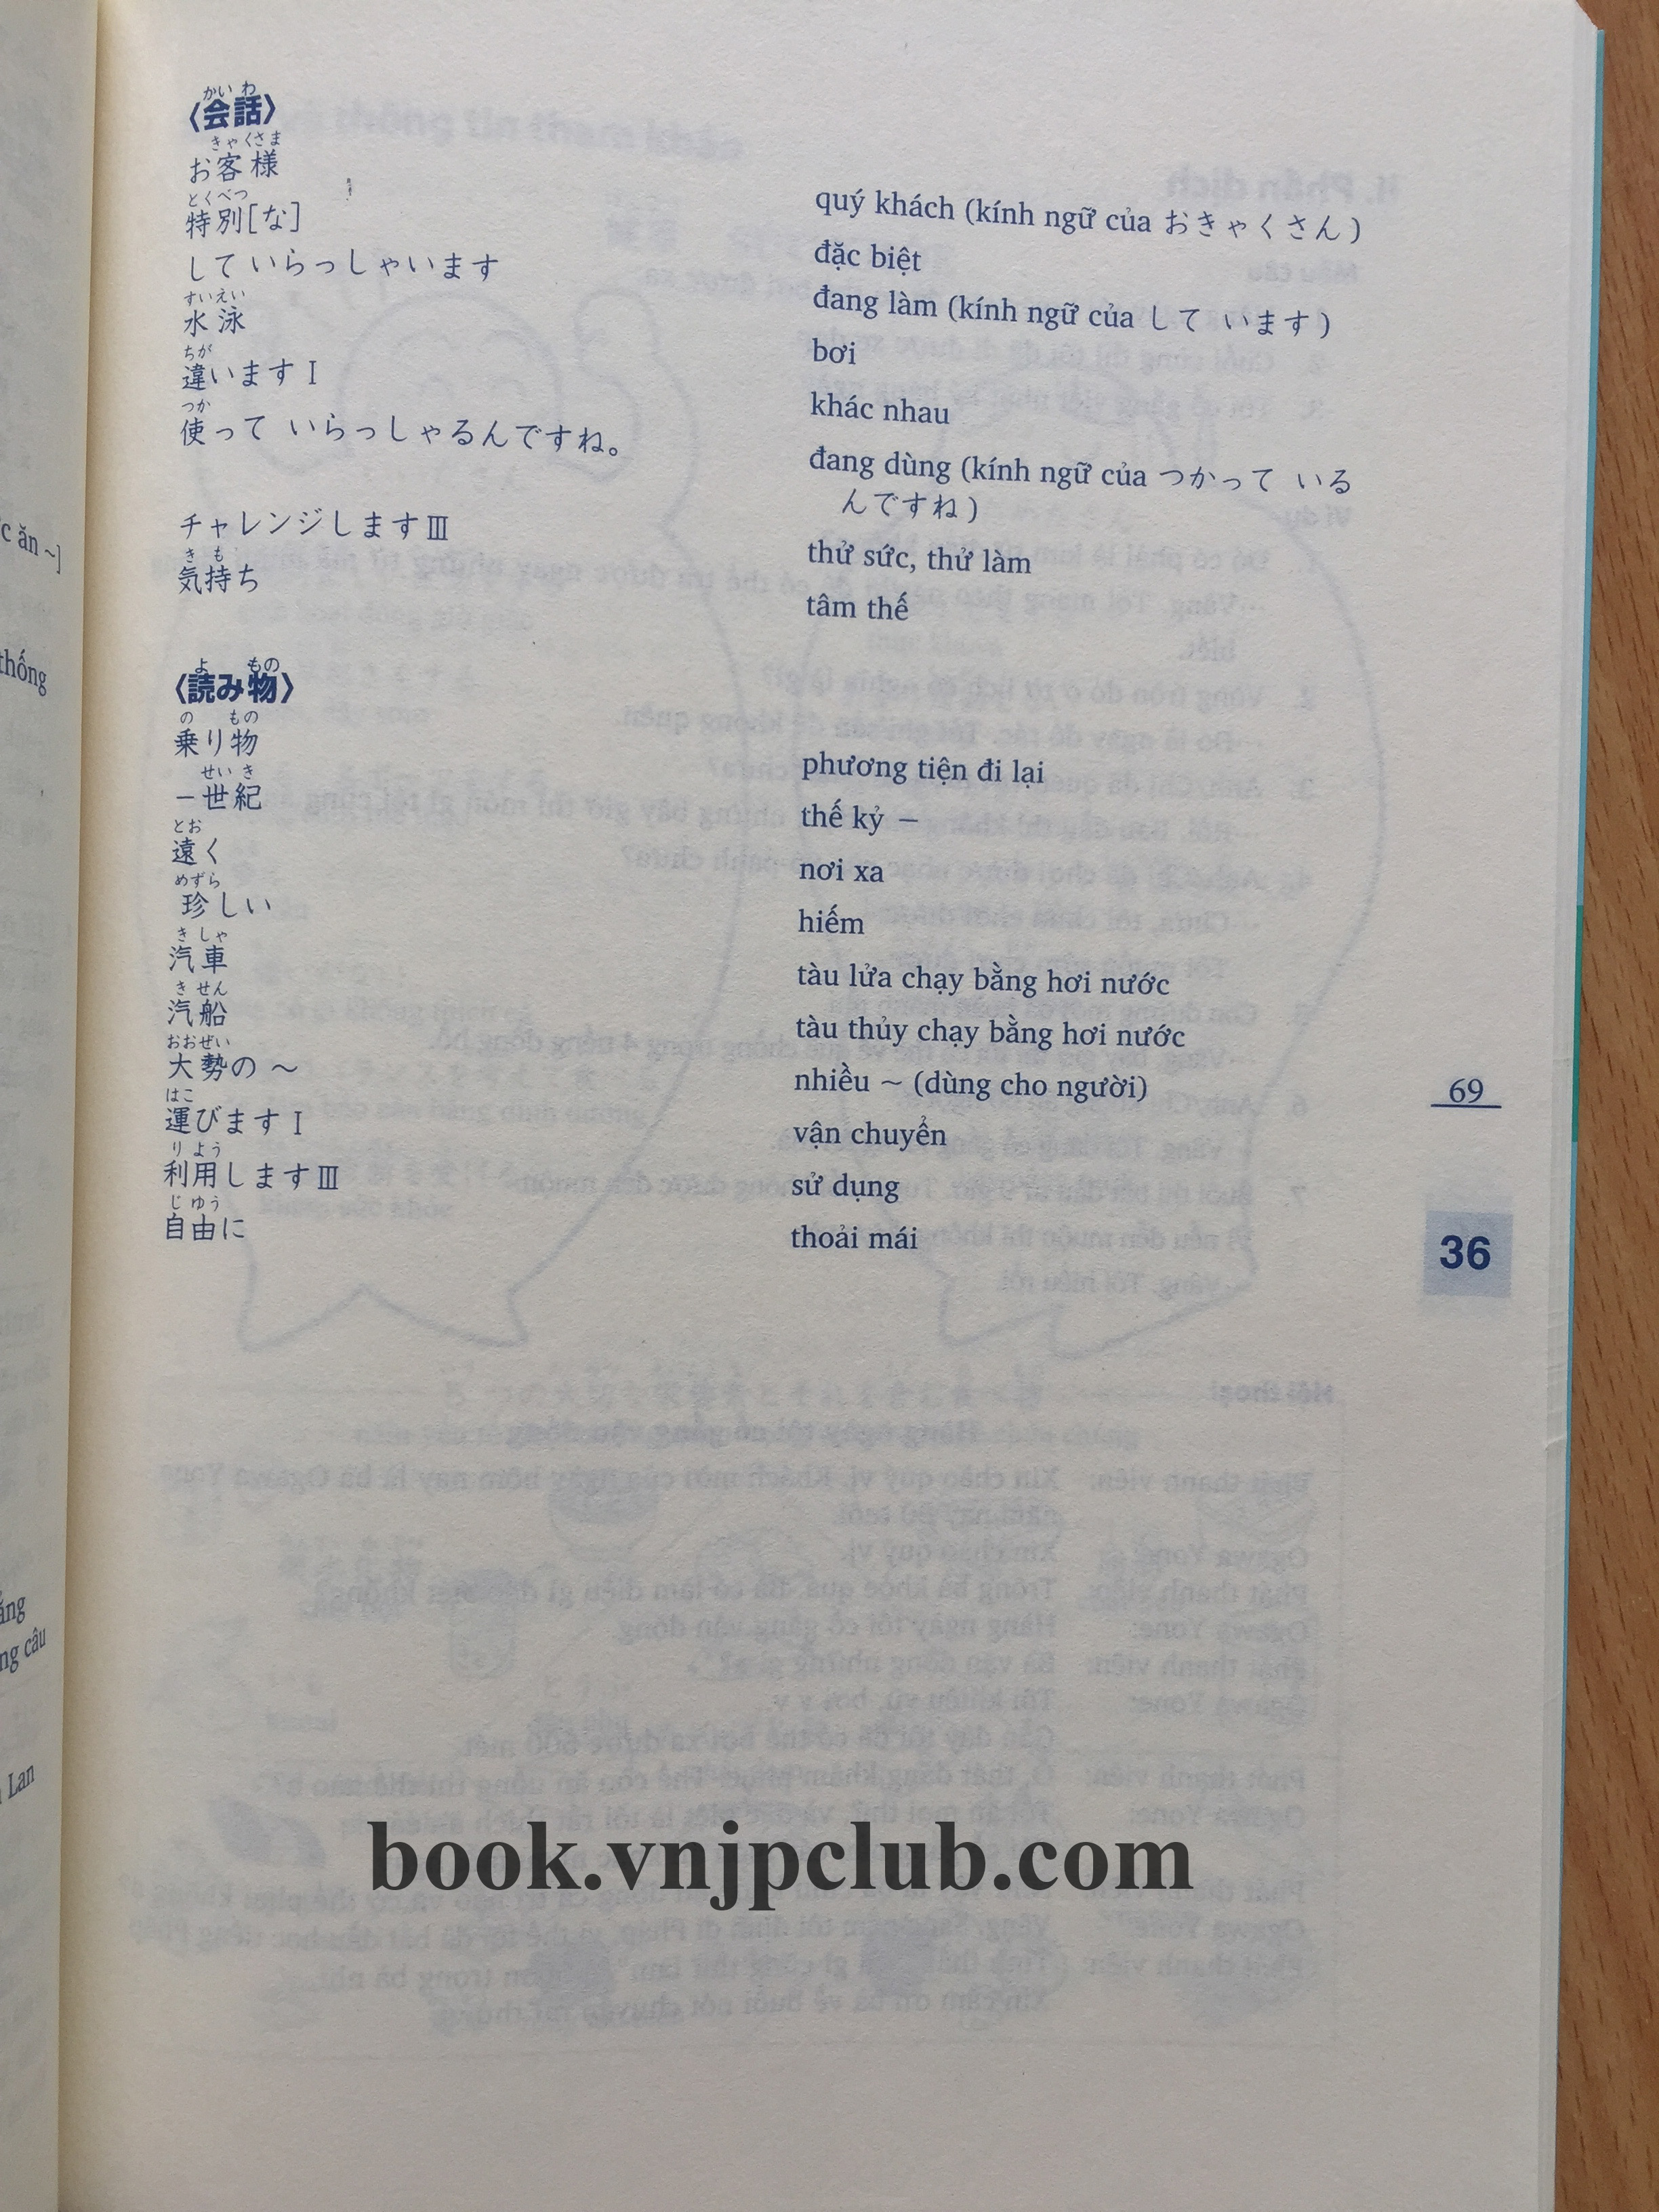 〈会話〉
お客様
quý khách (kính ngữ của おきゃくさん)
特別[な]
đặc biệt
して いらっしゃいます
đang làm (kính ngữ của して います)
水泳
bơi
違いますⅠ
khác nhau
使って いらっしゃるんですね。
đang dùng (kính ngữ của つかって いる
んですね)
チャレンジしますⅢ
thử sức, thử làm
気持ち
tâm thế
〈読み物〉
乗り物
phương tiện đi lại
－世紀
thế kỷ －
遠く
nơi xa
珍しい
hiếm
汽車
tàu lửa chạy bằng hơi nước
汽船
tàu thủy chạy bằng hơi nước
大勢の ～
nhiều ~ (dùng cho người)
運びますⅠ
vận chuyển
利用しますⅢ
sử dụng
自由に
thoải mái
69
36
book.vnjpclub.com